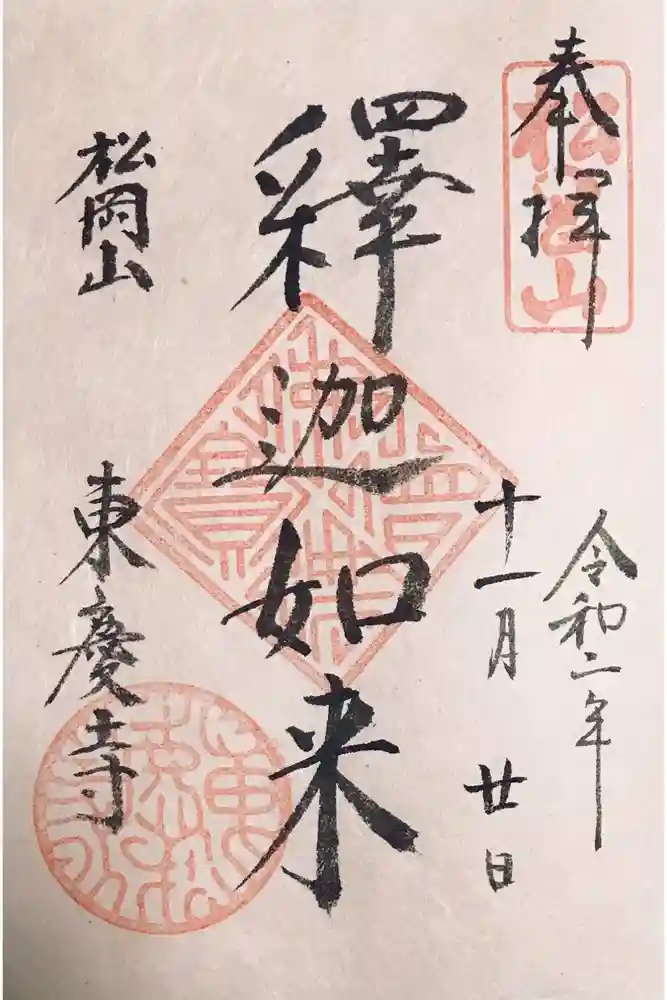 奉拝
令和二年
十一月廿日
釋迦如来
松岡山
東慶寺
松岡山